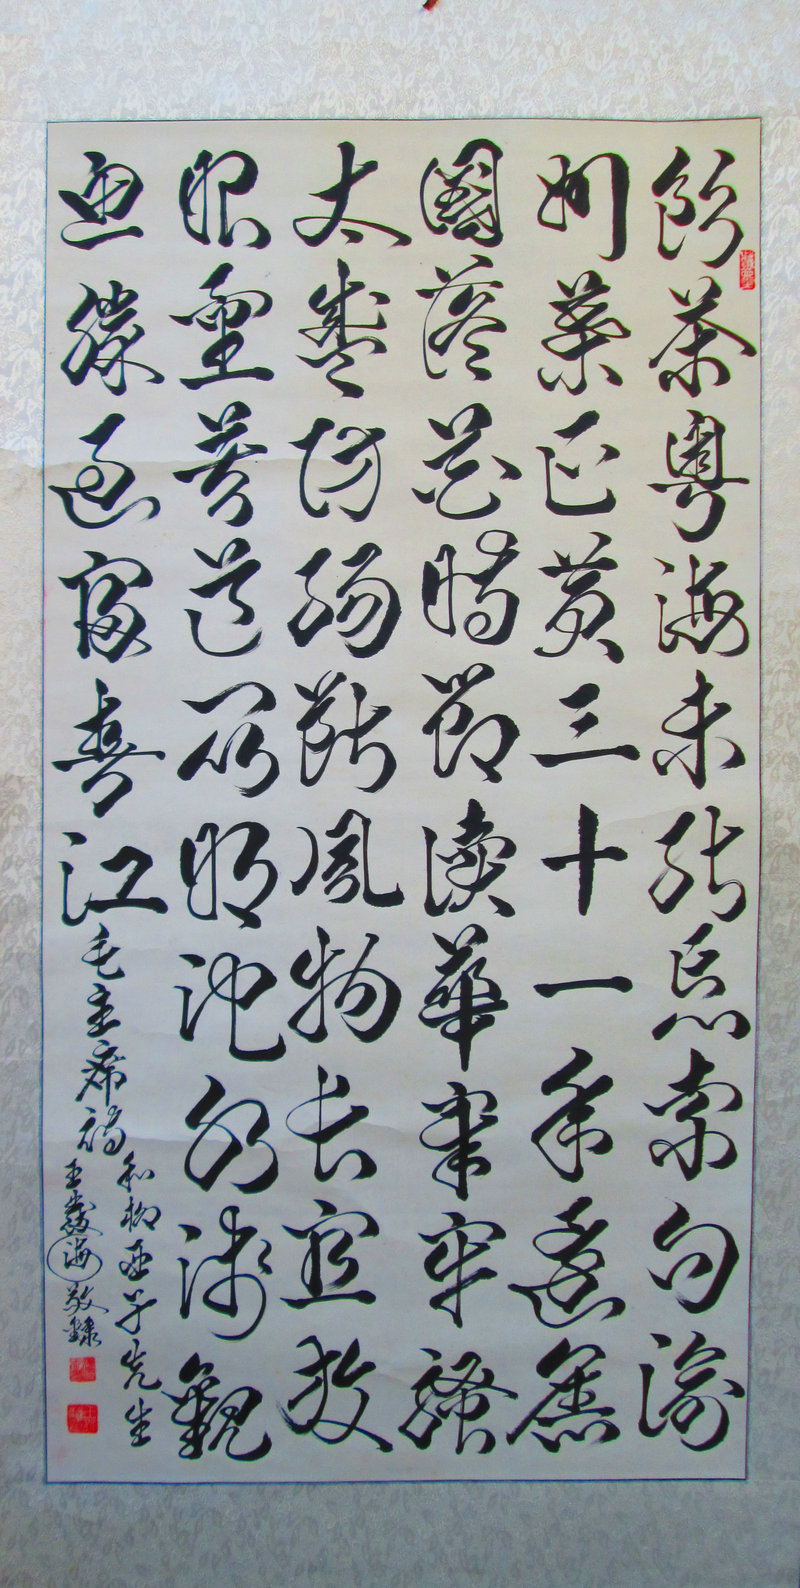 飲茶粵海未能忘索句渝
州葉正黃三十一年還舊
國落花時節讀華章牢騷
太盛防腸斷風物長宜放
眼量莫道昆明池水淺觀
魚勝過富春江
毛主席詩
和柳亞子先生
王海敬錄